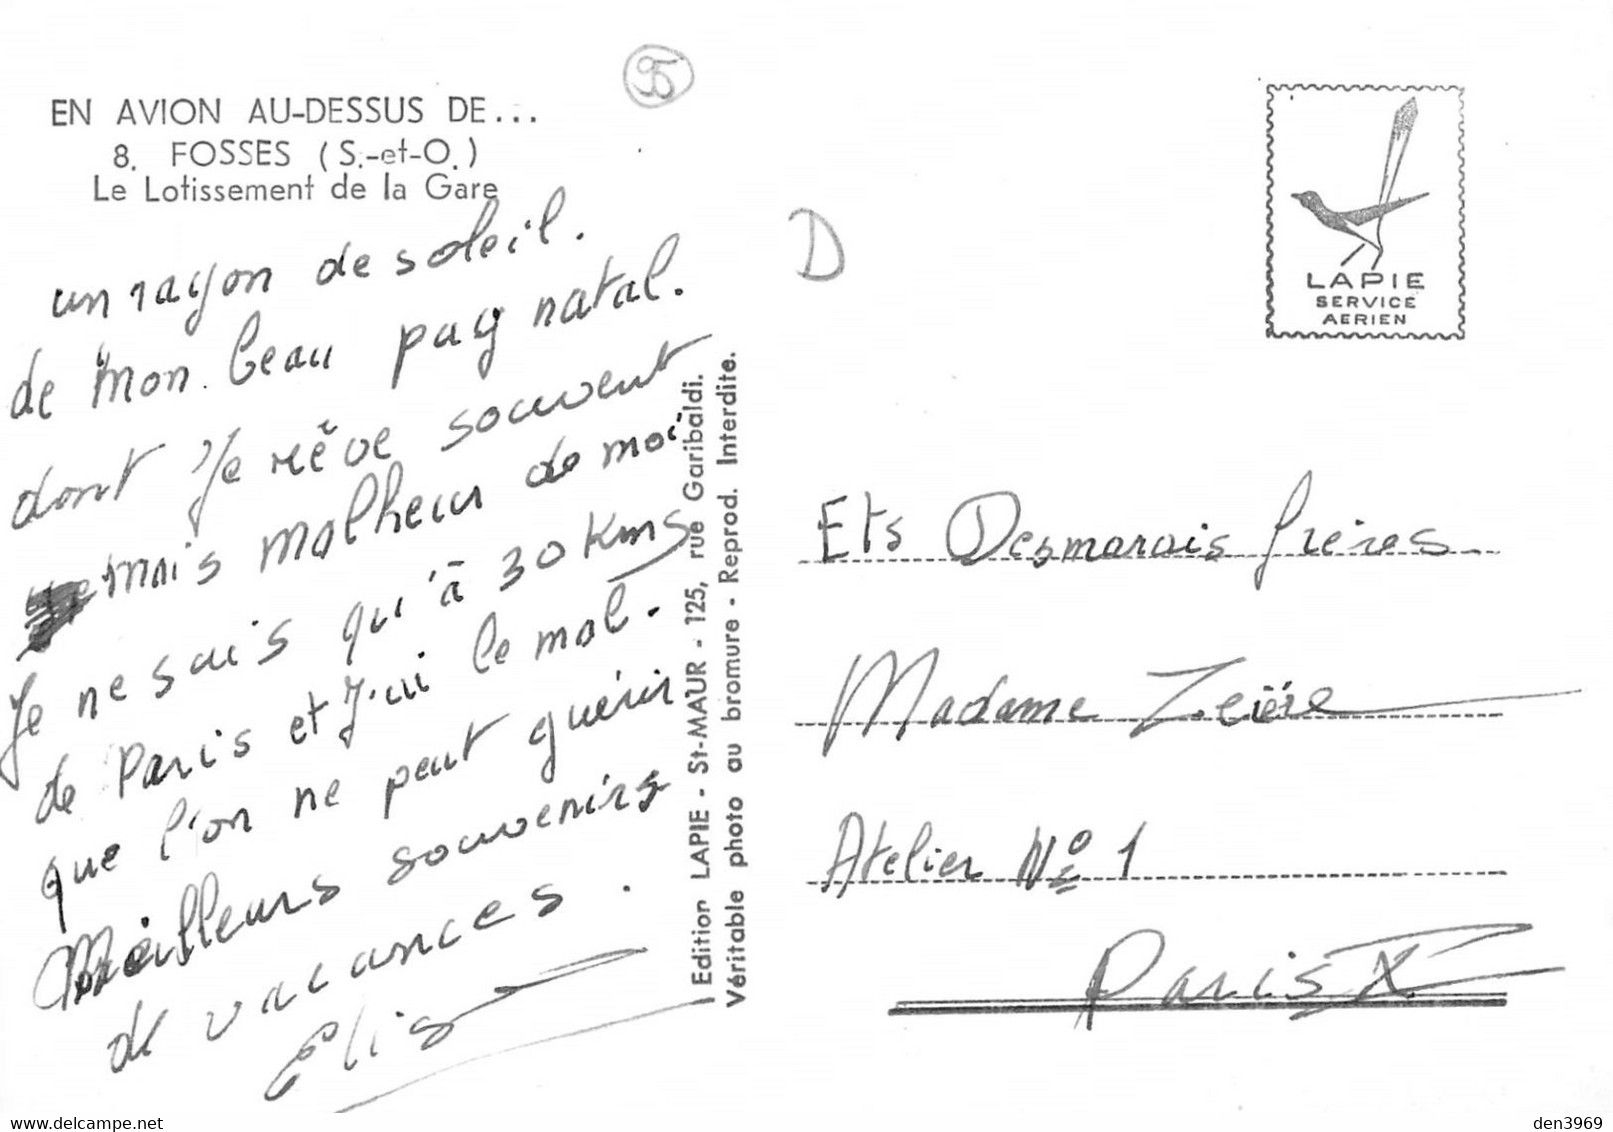 95
EN AVION AU-DESSUS DE...
8. FOSSES (S.-et-O.)
Le Lotissement de la Gare
un rayon de soleil.
de mon beau pay natal.
dont je rêve souvent
mais malheur de moi
Je ne suis qu'à 30 Kms
de Paris et j'ai le mal.
que l'on ne peut guérir
Meilleurs souvenirs
de vacances.
Elis
Edition LAPIE - St-MAUR - 125, rue Garibaldi.
Véritable photo au bromure - Reprod. Interdite.
D
LAPIE
SERVICE
AERIEN
Ets Desmarais frères
Madame
Atelier No 1
Paris X
delcampe.net
den3969